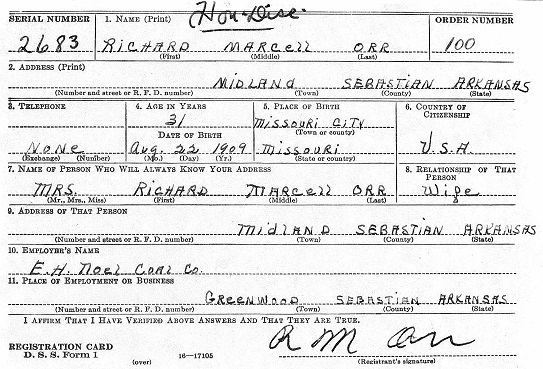 Hon. Disc.
SERIAL NUMBER 1. NAME (Print) ORDER NUMBER
2683 RICHARD MARCELL ORR 100
(First) (Middle) (Last)
2. ADDRESS (Print)
MIDLAND SEBASTIAN ARKANSAS
(Number and street or R. F. D. number) (Town) (County) (State)
3. TELEPHONE 4. AGE IN YEARS 5. PLACE OF BIRTH 6. COUNTRY OF CITIZENSHIP
31 MISSOURI CITY
DATE OF BIRTH (Town or county)
NONE Aug. 22 1909 MISSOURI U.S.A.
(Exchange) (Number) (Mo.) (Day) (Yr.) (State or country)
7. NAME OF PERSON WHO WILL ALWAYS KNOW YOUR ADDRESS 8. RELATIONSHIP OF THAT PERSON
MRS. RICHARD MARCELL ORR Wife
(Mr., Mrs., Miss) (First) (Middle) (Last)
9. ADDRESS OF THAT PERSON
MIDLAND SEBASTIAN ARKANSAS
(Number and street or R. F. D. number) (Town) (County) (State)
10. EMPLOYER'S NAME
E. H. NOEL COAL CO.
11. PLACE OF EMPLOYMENT OR BUSINESS
GREENWOOD SEBASTIAN ARKANSAS
(Number and street or R. F. D. number) (Town) (County) (State)
I AFFIRM THAT I HAVE VERIFIED ABOVE ANSWERS AND THAT THEY ARE TRUE.
R M Orr
REGISTRATION CARD
D. S. S. Form 1 (over) 16—17105 (Registrant's signature)